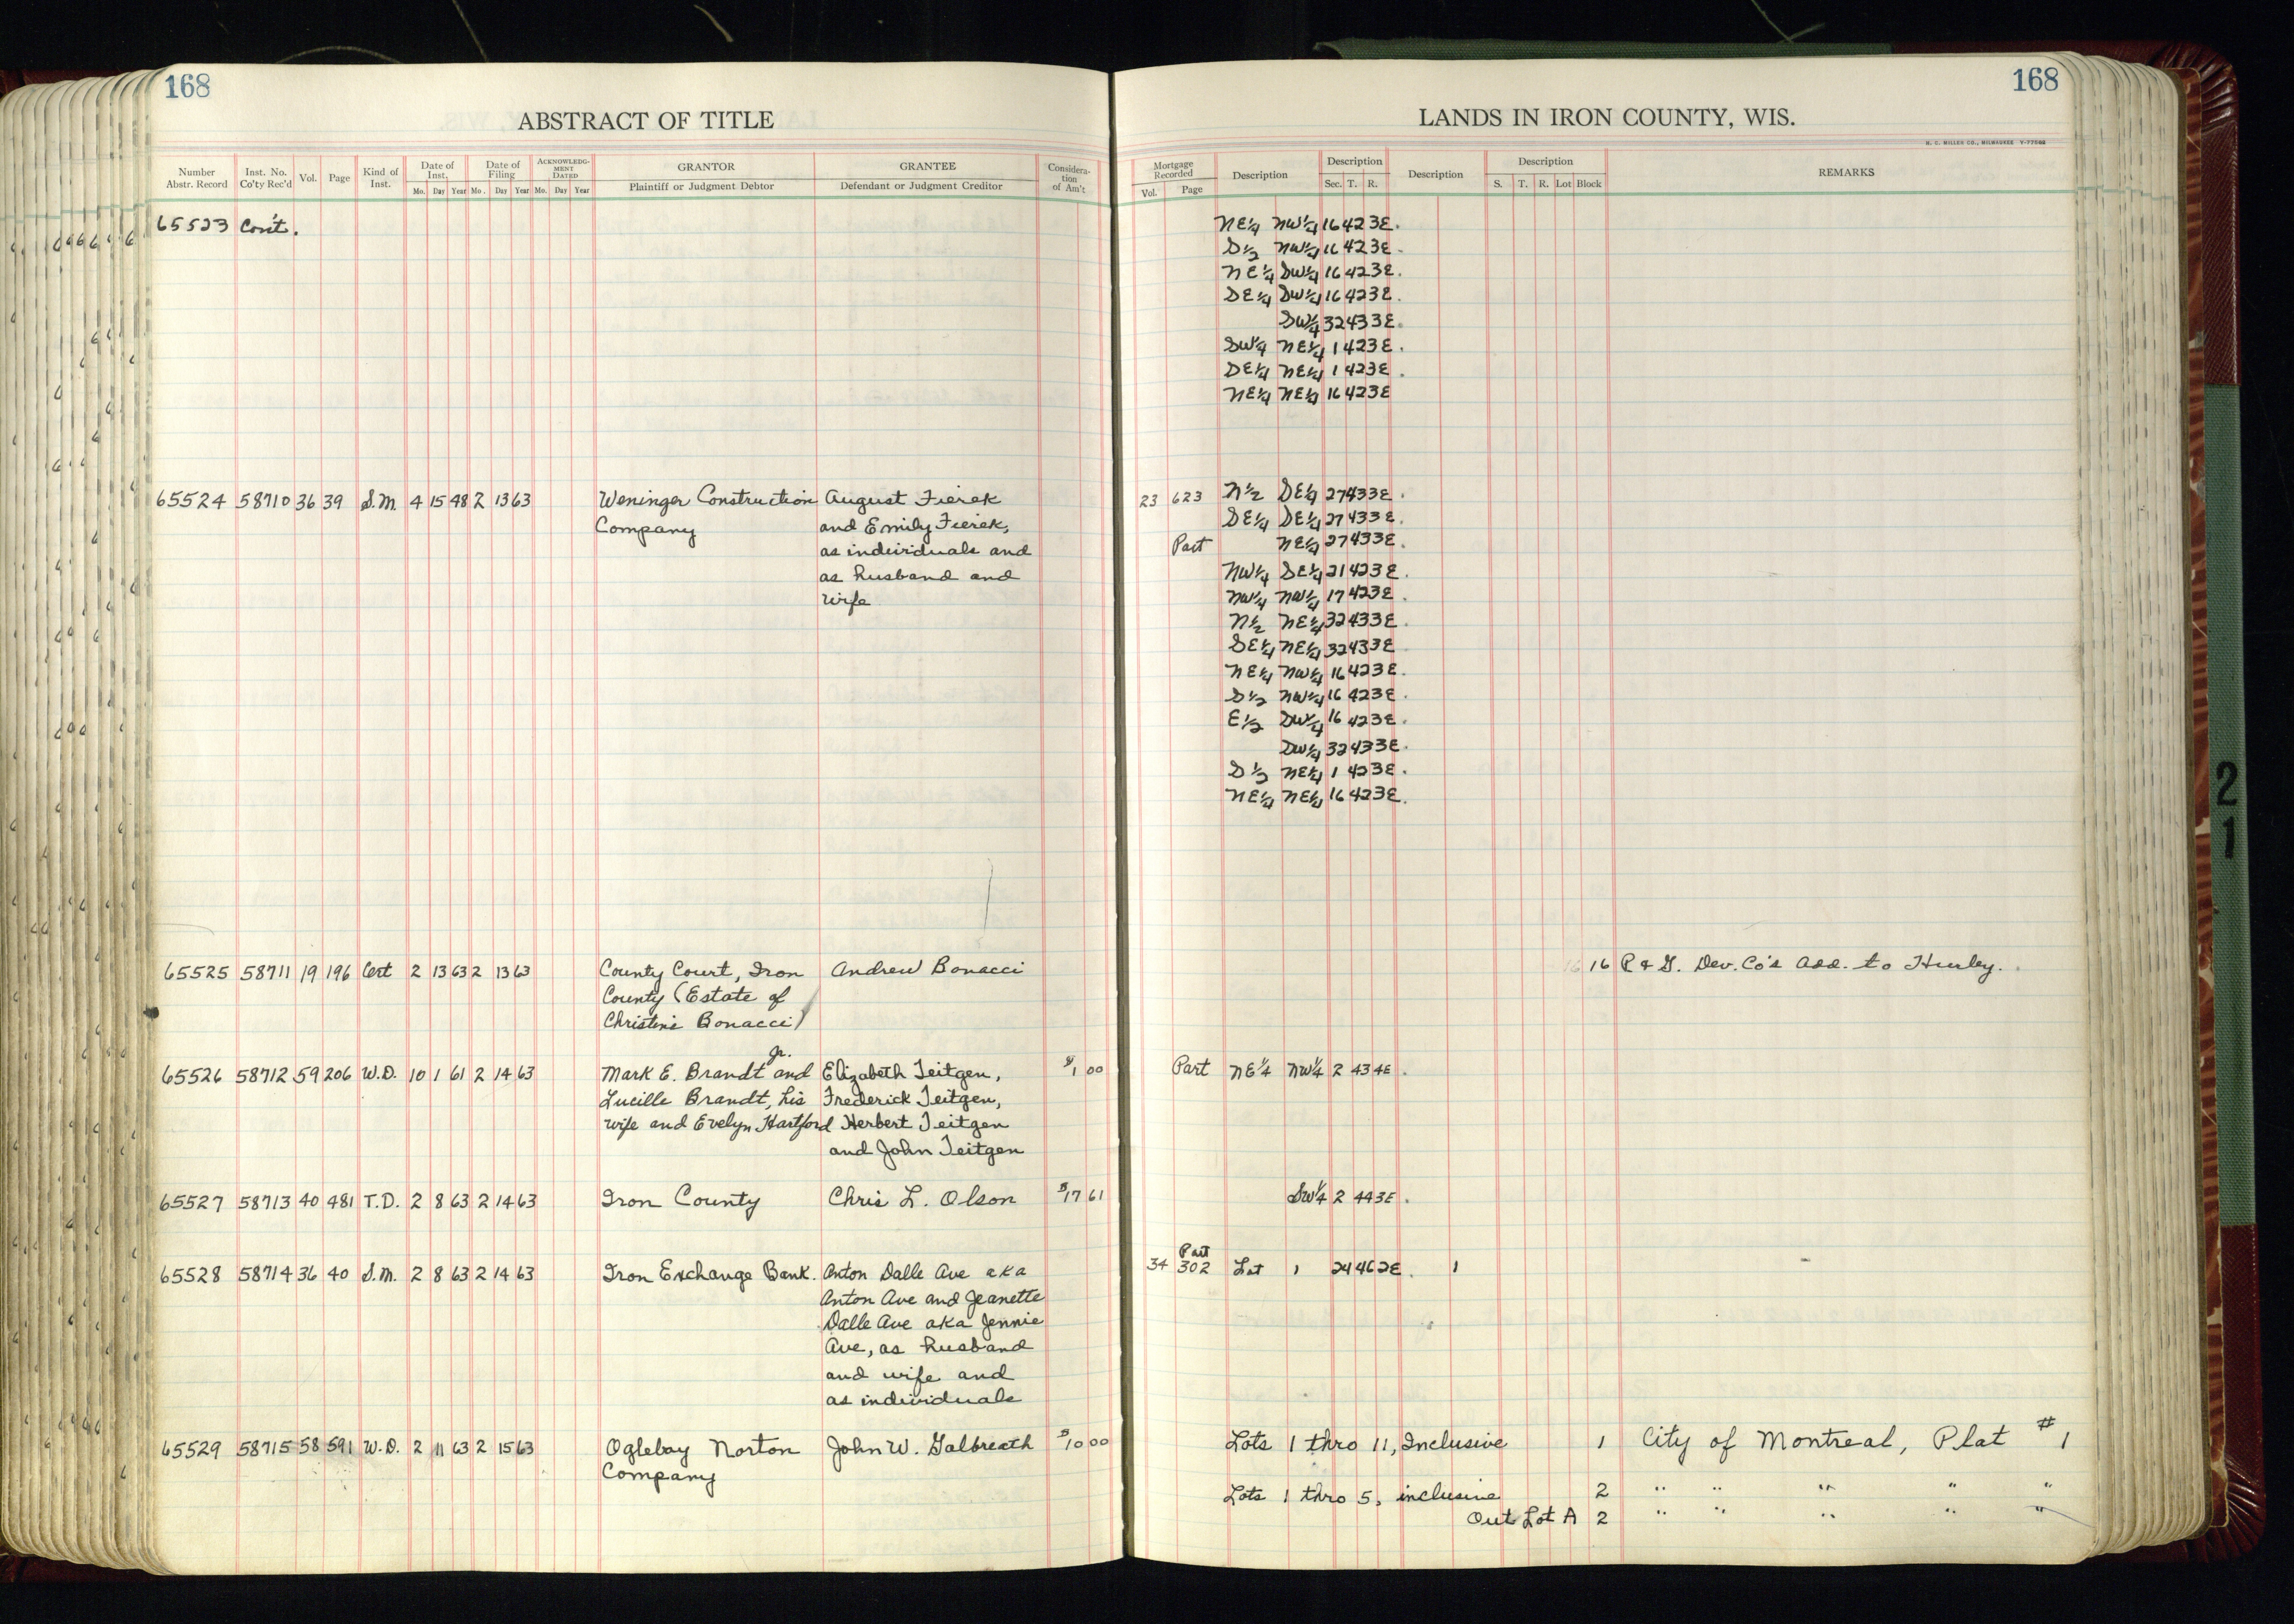 168
ABSTRACT OF TITLE
Number Abstr. Record
Inst. No. Co'ty Rec'd
Vol.
Page
Kind of Inst.
Date of Inst.
Mo. Day Year
Date of Filing
Mo. Day Year
ACKNOWLEDGMENT DATED
Mo. Day Year
GRANTOR
Plaintiff or Judgment Debtor
GRANTEE
Defendant or Judgment Creditor
Consideration of Am't
65523 Con't.
65524 58710 36 39 S.M. 4 15 48 2 13 63 Weninger Construction August Fierek
Company and Emily Fierek,
as individuals and
as husband and
wife
65525 58711 19 196 Cert 2 13 63 2 13 63 County Court, Iron Andrew Bonacci
County (Estate of
Christine Bonacci)
Jr.
65526 58712 59 206 W.D. 10 1 61 2 14 63 Mark E. Brandt and Elizabeth Teitgen, $1 00
Lucille Brandt, his Frederick Teitgen,
wife and Evelyn Hartford Herbert Teitgen
and John Teitgen
65527 58713 40 481 T.D. 2 8 63 2 14 63 Iron County Chris L. Olson $17 61
65528 58714 36 40 S.M. 2 8 63 2 14 63 Iron Exchange Bank. Anton Dalle Ave aka
Anton Ave and Jeanette
Dalle Ave aka Jennie
Ave, as husband
and wife and
as individuals
65529 58715 58 591 W.D. 2 11 63 2 15 63 Oglebay Norton John W. Galbreath $10 00
Company
168
LANDS IN IRON COUNTY, WIS.
H. C. MILLER CO., MILWAUKEE
Mortgage Recorded
Vol. Page
Description
Description
Sec. T. R.
Description
Description
S. T. R. Lot Block
REMARKS
NE¼ NW¼ 16 42 3E.
S½ NW¼ 16 42 3E.
NE¼ SW¼ 16 42 3E.
SE¼ SW¼ 16 42 3E.
SW¼ 32 43 3E.
SW¼ NE¼ 1 42 3E.
SE¼ NE¼ 1 42 3E.
NE¼ NE¼ 16 42 3E
23 623 N½ SE¼ 27 43 3E.
SE¼ SE¼ 27 43 3E.
Part NE¼ 27 43 3E.
NW¼ SE¼ 21 42 3E.
NW¼ NW¼ 17 42 3E.
N½ NE¼ 32 43 3E.
SE¼ NE¼ 32 43 3E
NE¼ NW¼ 16 42 3E.
S½ NW¼ 16 42 3E.
E½ SW¼ 16 42 3E.
SW¼ 32 43 3E.
S½ NE¼ 1 42 3E.
NE¼ NE¼ 16 42 3E.
16 16 P & G. Dev. Co's Add. to Hurley.
Part NE¼ NW¼ 2 43 4E.
SW¼ 2 44 3E.
Part
34 302 Lot 1 24 46 2E. 1
Lots 1 thro 11, Inclusive 1 City of Montreal, Plat #1
Lots 1 thro 5, inclusive 2 " " " " "
Out Lot A 2 " " " " "
2
1